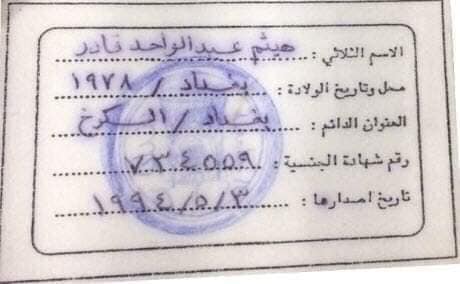 الاسم الثلاثي : هيثم عبدالواحد قادر
محل وتاريخ الولادة : بغداد / ١٩٧٨
العنوان الدائم : بغداد / الكرخ
رقم شهادة الجنسية : ٧٣٤٥٥٩
تاريخ اصدارها : ١٩٩٤/٥/٣